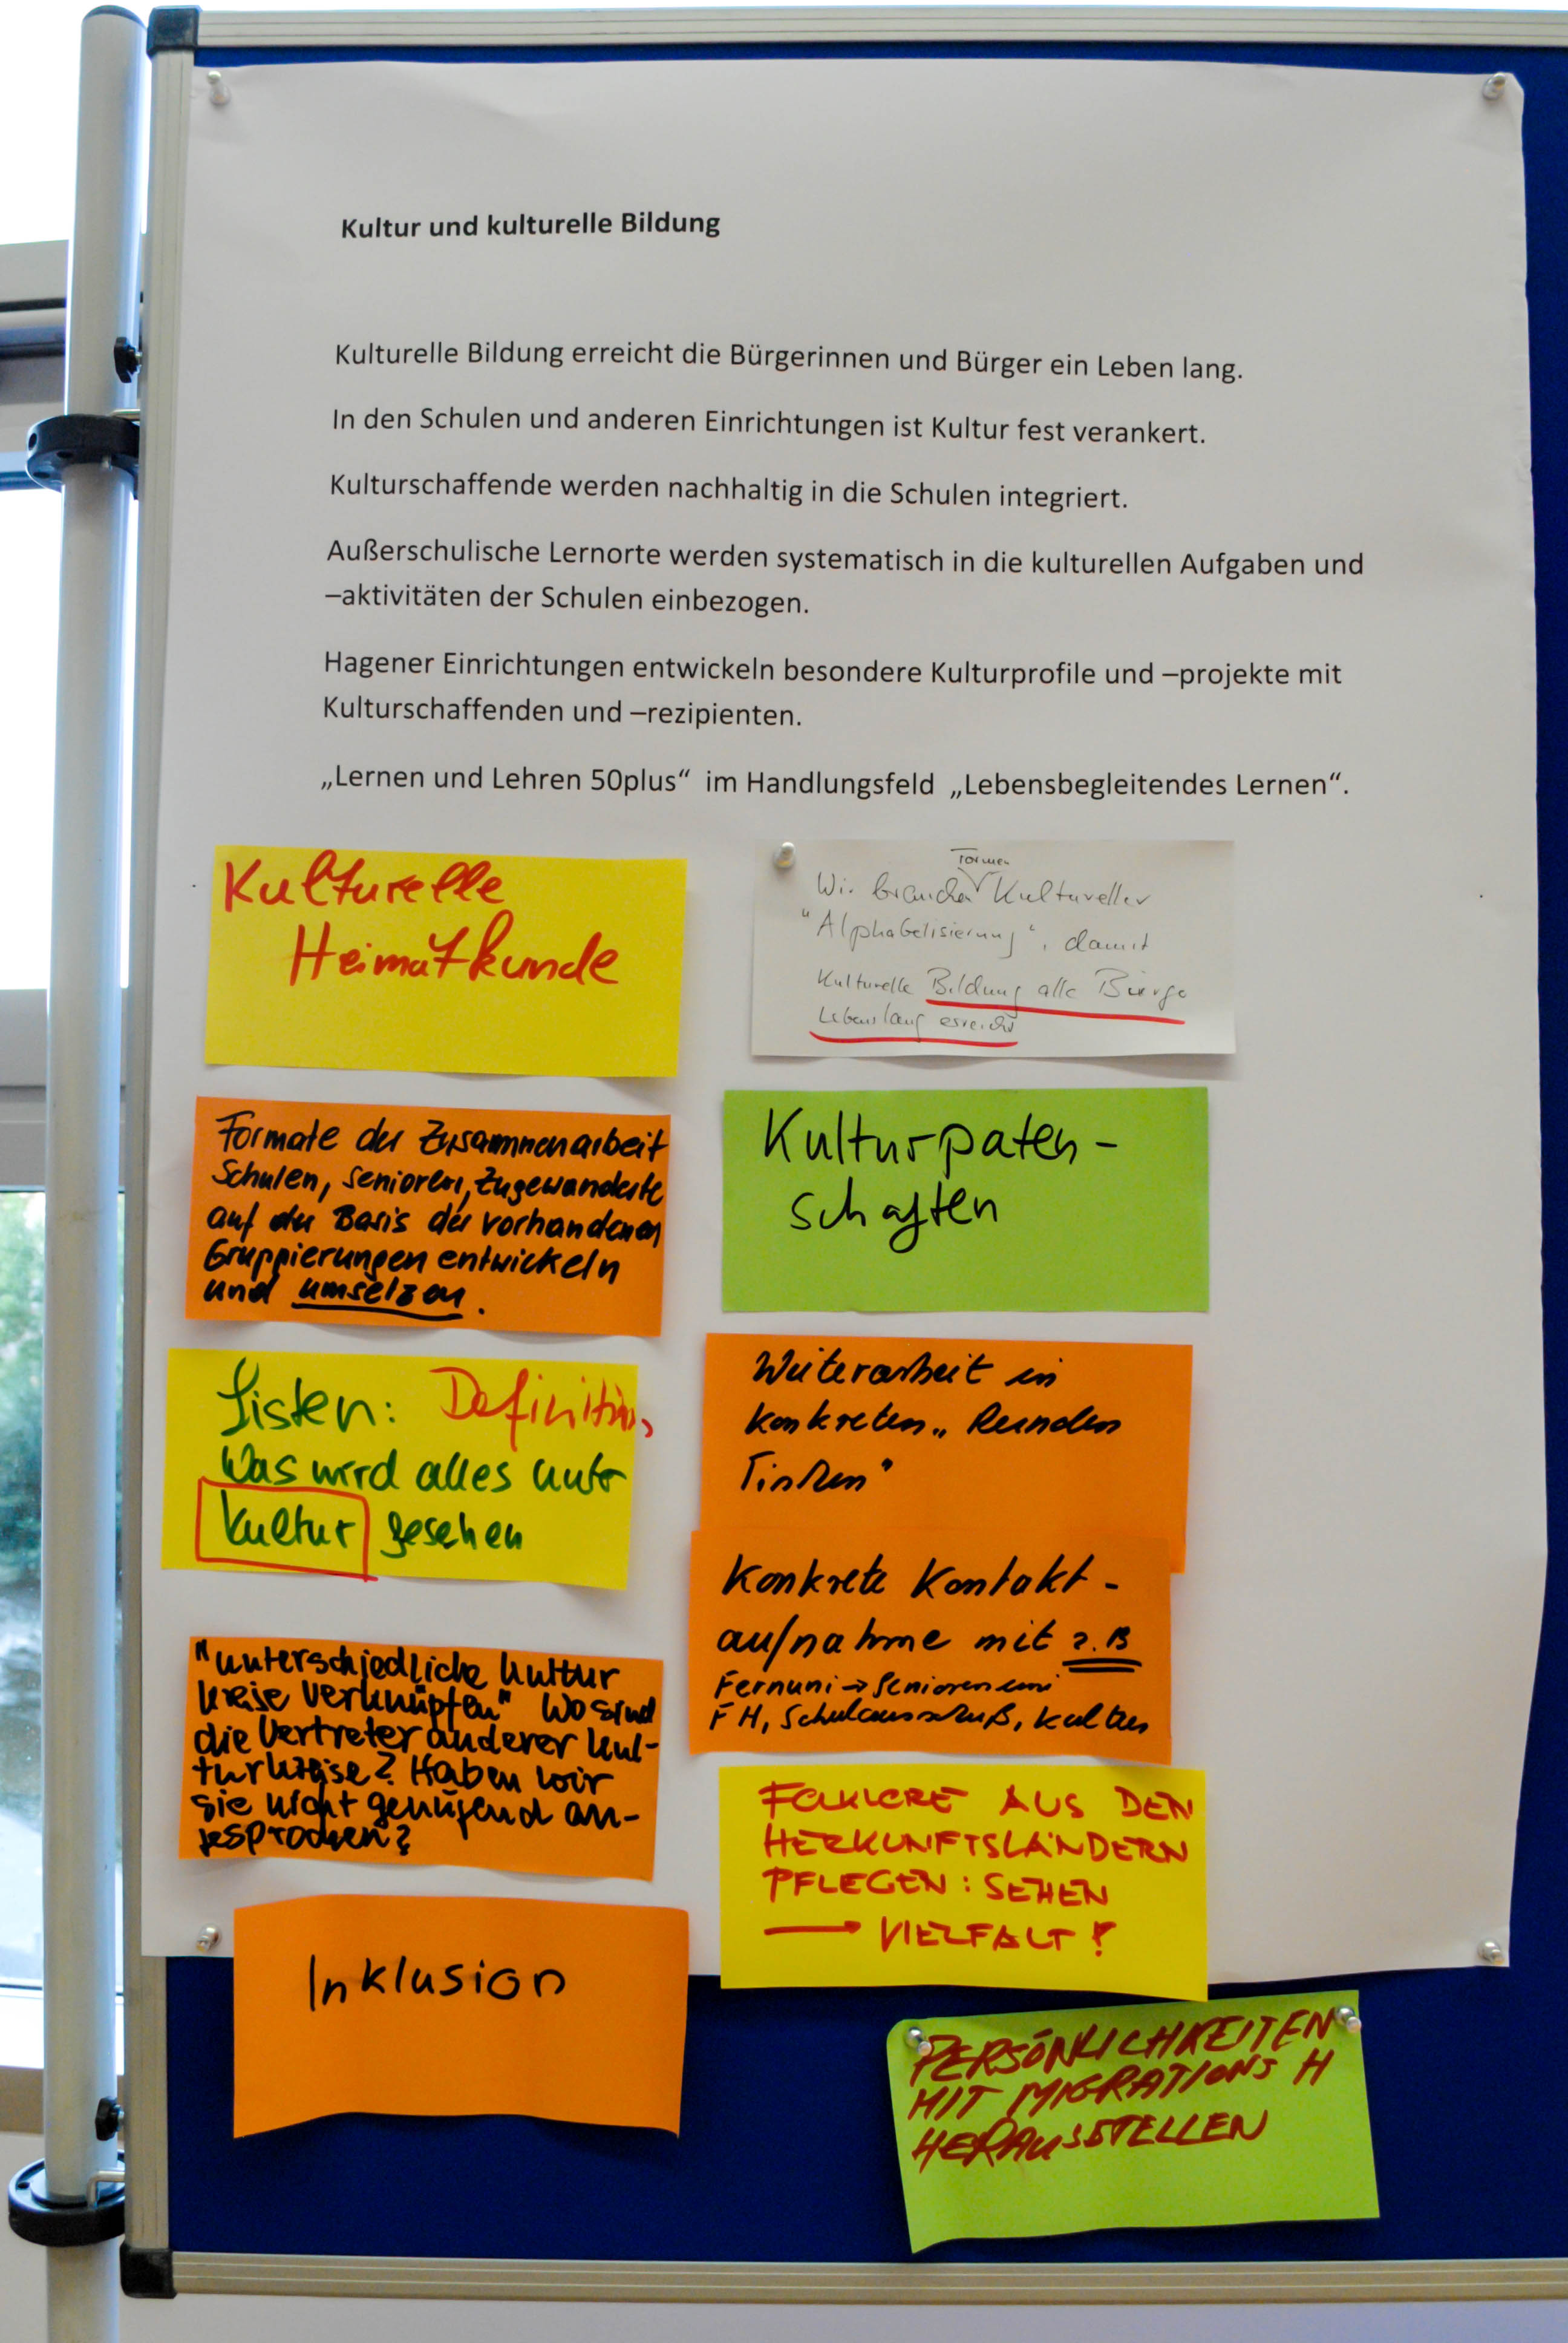 Kultur und kulturelle Bildung
Kulturelle Bildung erreicht die Bürgerinnen und Bürger ein Leben lang.
In den Schulen und anderen Einrichtungen ist Kultur fest verankert.
Kulturschaffende werden nachhaltig in die Schulen integriert.
Außerschulische Lernorte werden systematisch in die kulturellen Aufgaben und
–aktivitäten der Schulen einbezogen.
Hagener Einrichtungen entwickeln besondere Kulturprofile und –projekte mit
Kulturschaffenden und –rezipienten.
„Lernen und Lehren 50plus“ im Handlungsfeld „Lebensbegleitendes Lernen“.
Kulturelle
Heimatkunde
Formen
Wir brauchen Kultureller
"Alphabetisierung", damit
Kulturelle Bildung alle Bürger
Lebenslang erreicht
Formate der Zusammenarbeit
Schulen, Senioren, Zugewanderte
auf der Basis der vorhandenen
Gruppierungen entwickeln
und umsetzen.
Kulturpaten-
schaften
Listen: Definition,
Was wird alles unter
Kultur gesehen
Weiterarbeit in
konkreten „Runden
Tischen"
Konkrete Kontakt-
aufnahme mit z.B
Fernuni → Seniorenuni
FH, Schulausschuß, Kultus
"unterschiedliche Kultur
kreise verknüpfen" Wo sind
die Vertreter anderer Kul-
turkreise? Haben wir
sie nicht genügend an-
gesprochen?
FOLKLORE AUS DEN
HERKUNFTSLÄNDERN
PFLEGEN: SEHEN
→ VIELFALT!
Inklusion
PERSÖNLICHKEITEN
MIT MIGRATIONS H
HERAUSSTELLEN